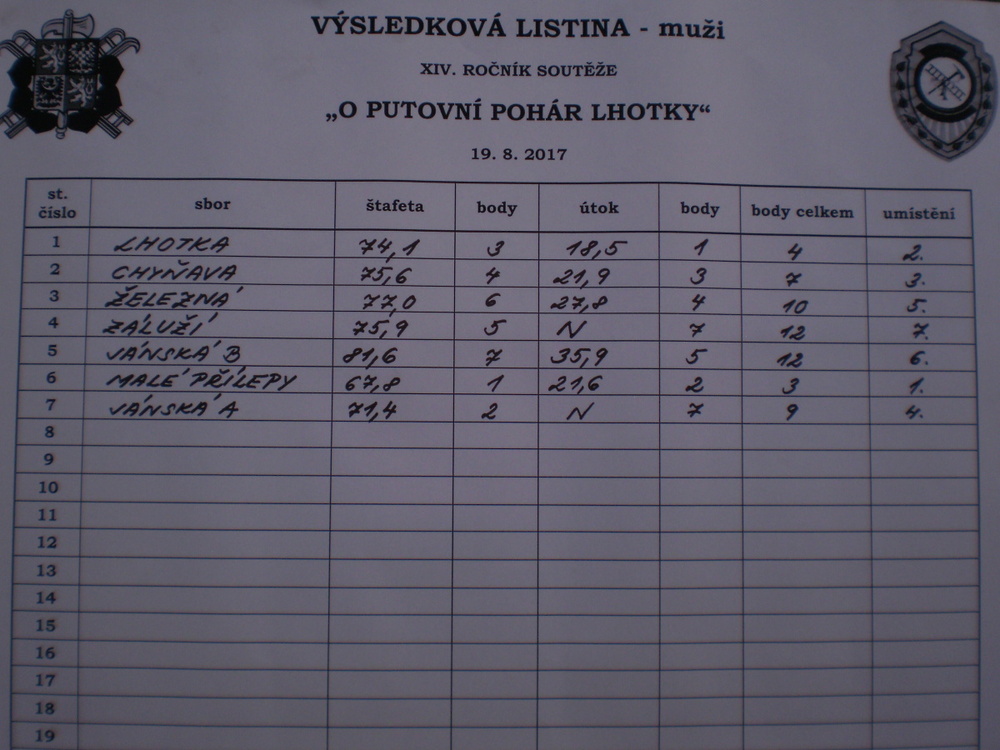 VÝSLEDKOVÁ LISTINA - muži
XIV. ROČNÍK SOUTĚŽE
„O PUTOVNÍ POHÁR LHOTKY“
19. 8. 2017
st. číslo sbor štafeta body útok body body celkem umístění
1 LHOTKA 74,1 3 18,5 1 4 2.
2 CHYŇAVA 75,6 4 21,9 3 7 3.
3 ŽELEZNÁ 77,0 6 27,8 4 10 5.
4 ZÁLUŽÍ 75,9 5 N 7 12 7.
5 JÁNSKÁ B 81,6 7 35,9 5 12 6.
6 MALÉ PŘÍLEPY 67,8 1 21,6 2 3 1.
7 JÁNSKÁ A 71,4 2 N 7 9 4.
8
9
10
11
12
13
14
15
16
17
18
19